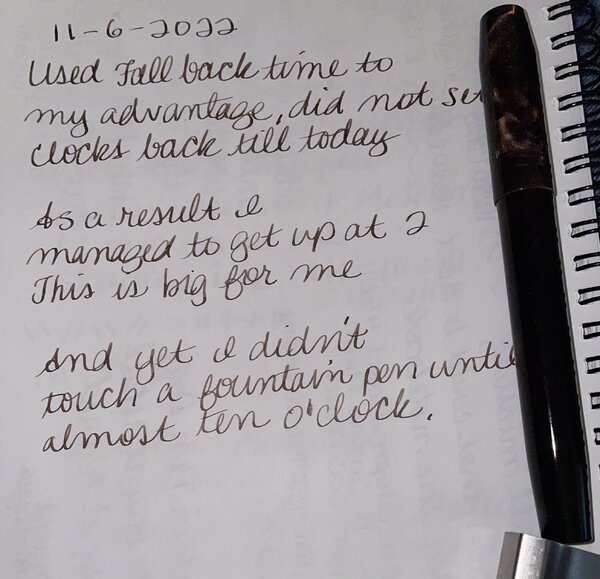 11-6-2022
Used Fall back time to
my advantage, did not se
clocks back till today
As a result I
managed to get up at 2
This is big for me
And yet I didn't
touch a fountain pen until
almost ten o'clock.